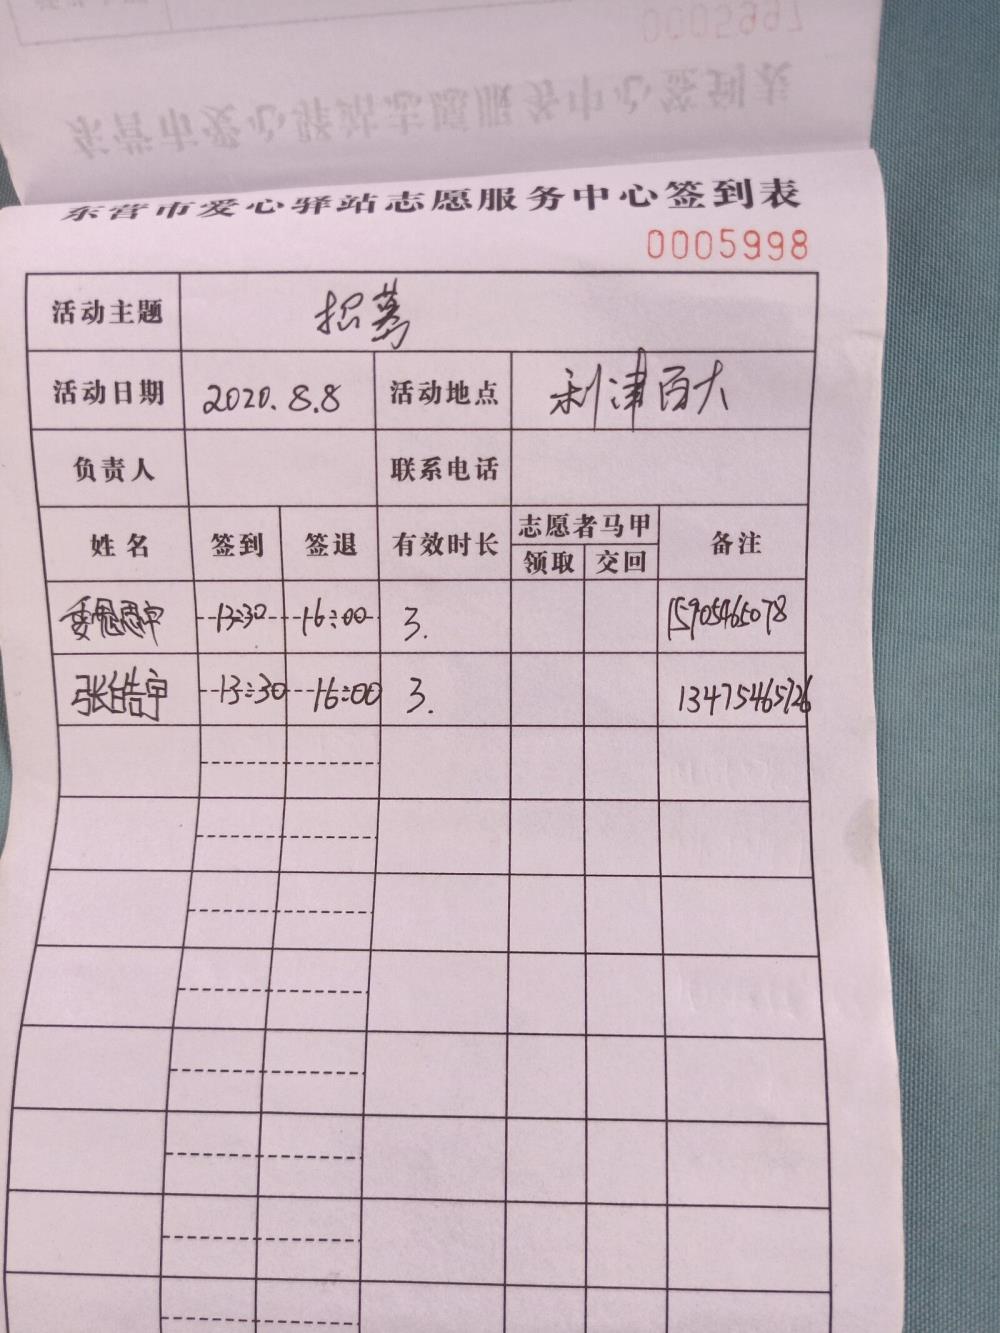 0005997
东营市爱心驿站志愿服务中心签到表
东营市爱心驿站志愿服务中心签到表
0005998
活动主题 招募
活动日期 2020.8.8 活动地点 利津百大
负责人 联系电话
姓名 签到 签退 有效时长 志愿者马甲 备注
领取 交回
13:30 16:00 3. 15905465078
张皓宇 13:30 16:00 3. 13475465726